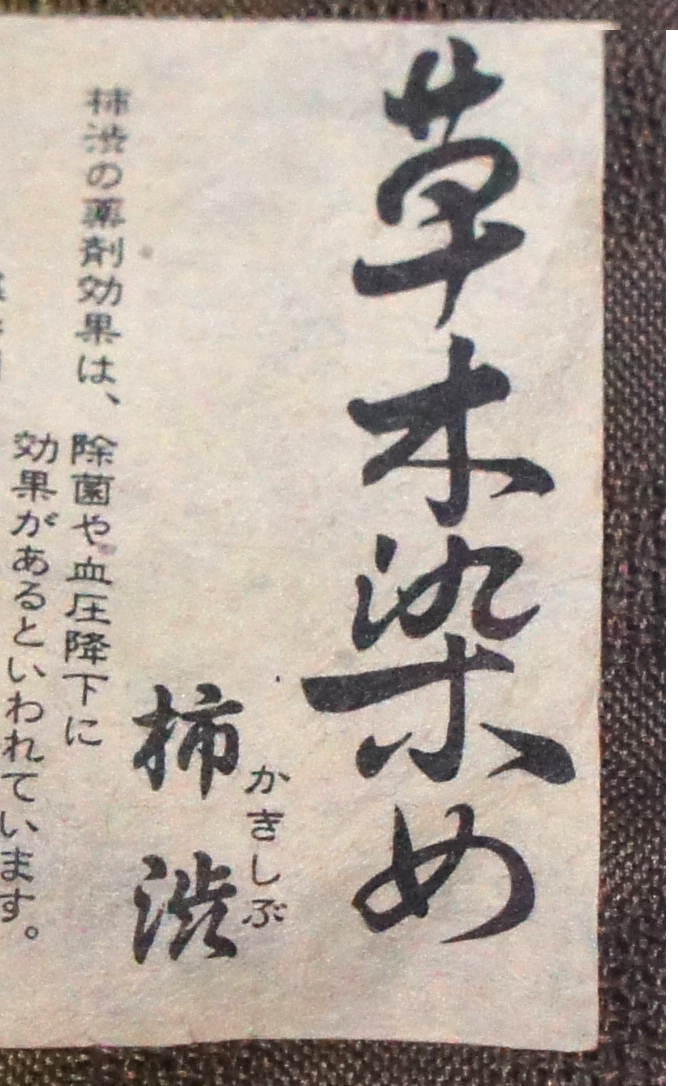 草木染め
かきしぶ
柿渋
柿渋の薬剤効果は、
除菌や血圧降下に
効果があるといわれています。